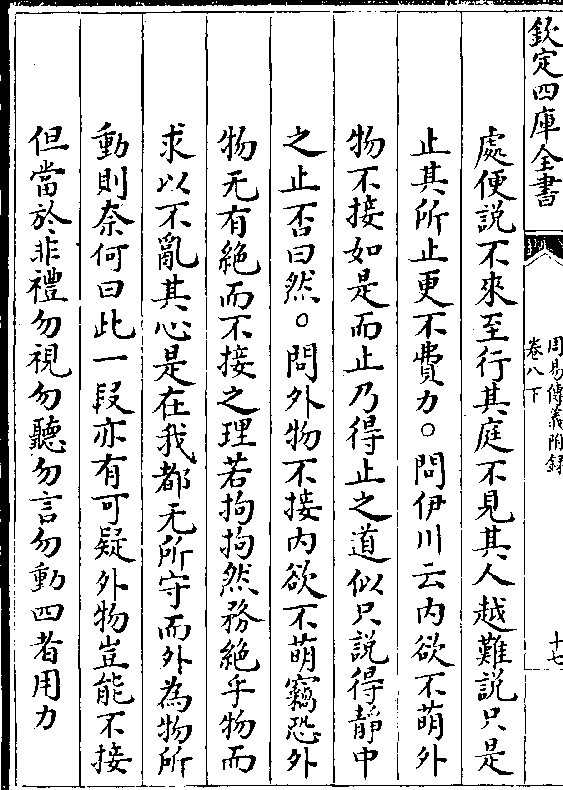 欽定四庫全書
周易傳義附録
卷八下
十七
處便説不來至行其庭不見其人越難説只是
止其所止更不費力○問伊川云内欲不萌外
物不接如是而止乃得止之道似只説得靜中
之止否曰然○問外物不接内欲不萌竊恐外
物无有絶而不接之理若拘拘然務絶乎物而
求以不亂其心是在我都无所守而外為物所
動則奈何曰此一段亦有可疑外物豈能不接
但當於非禮勿視勿聽勿言勿動四者用力